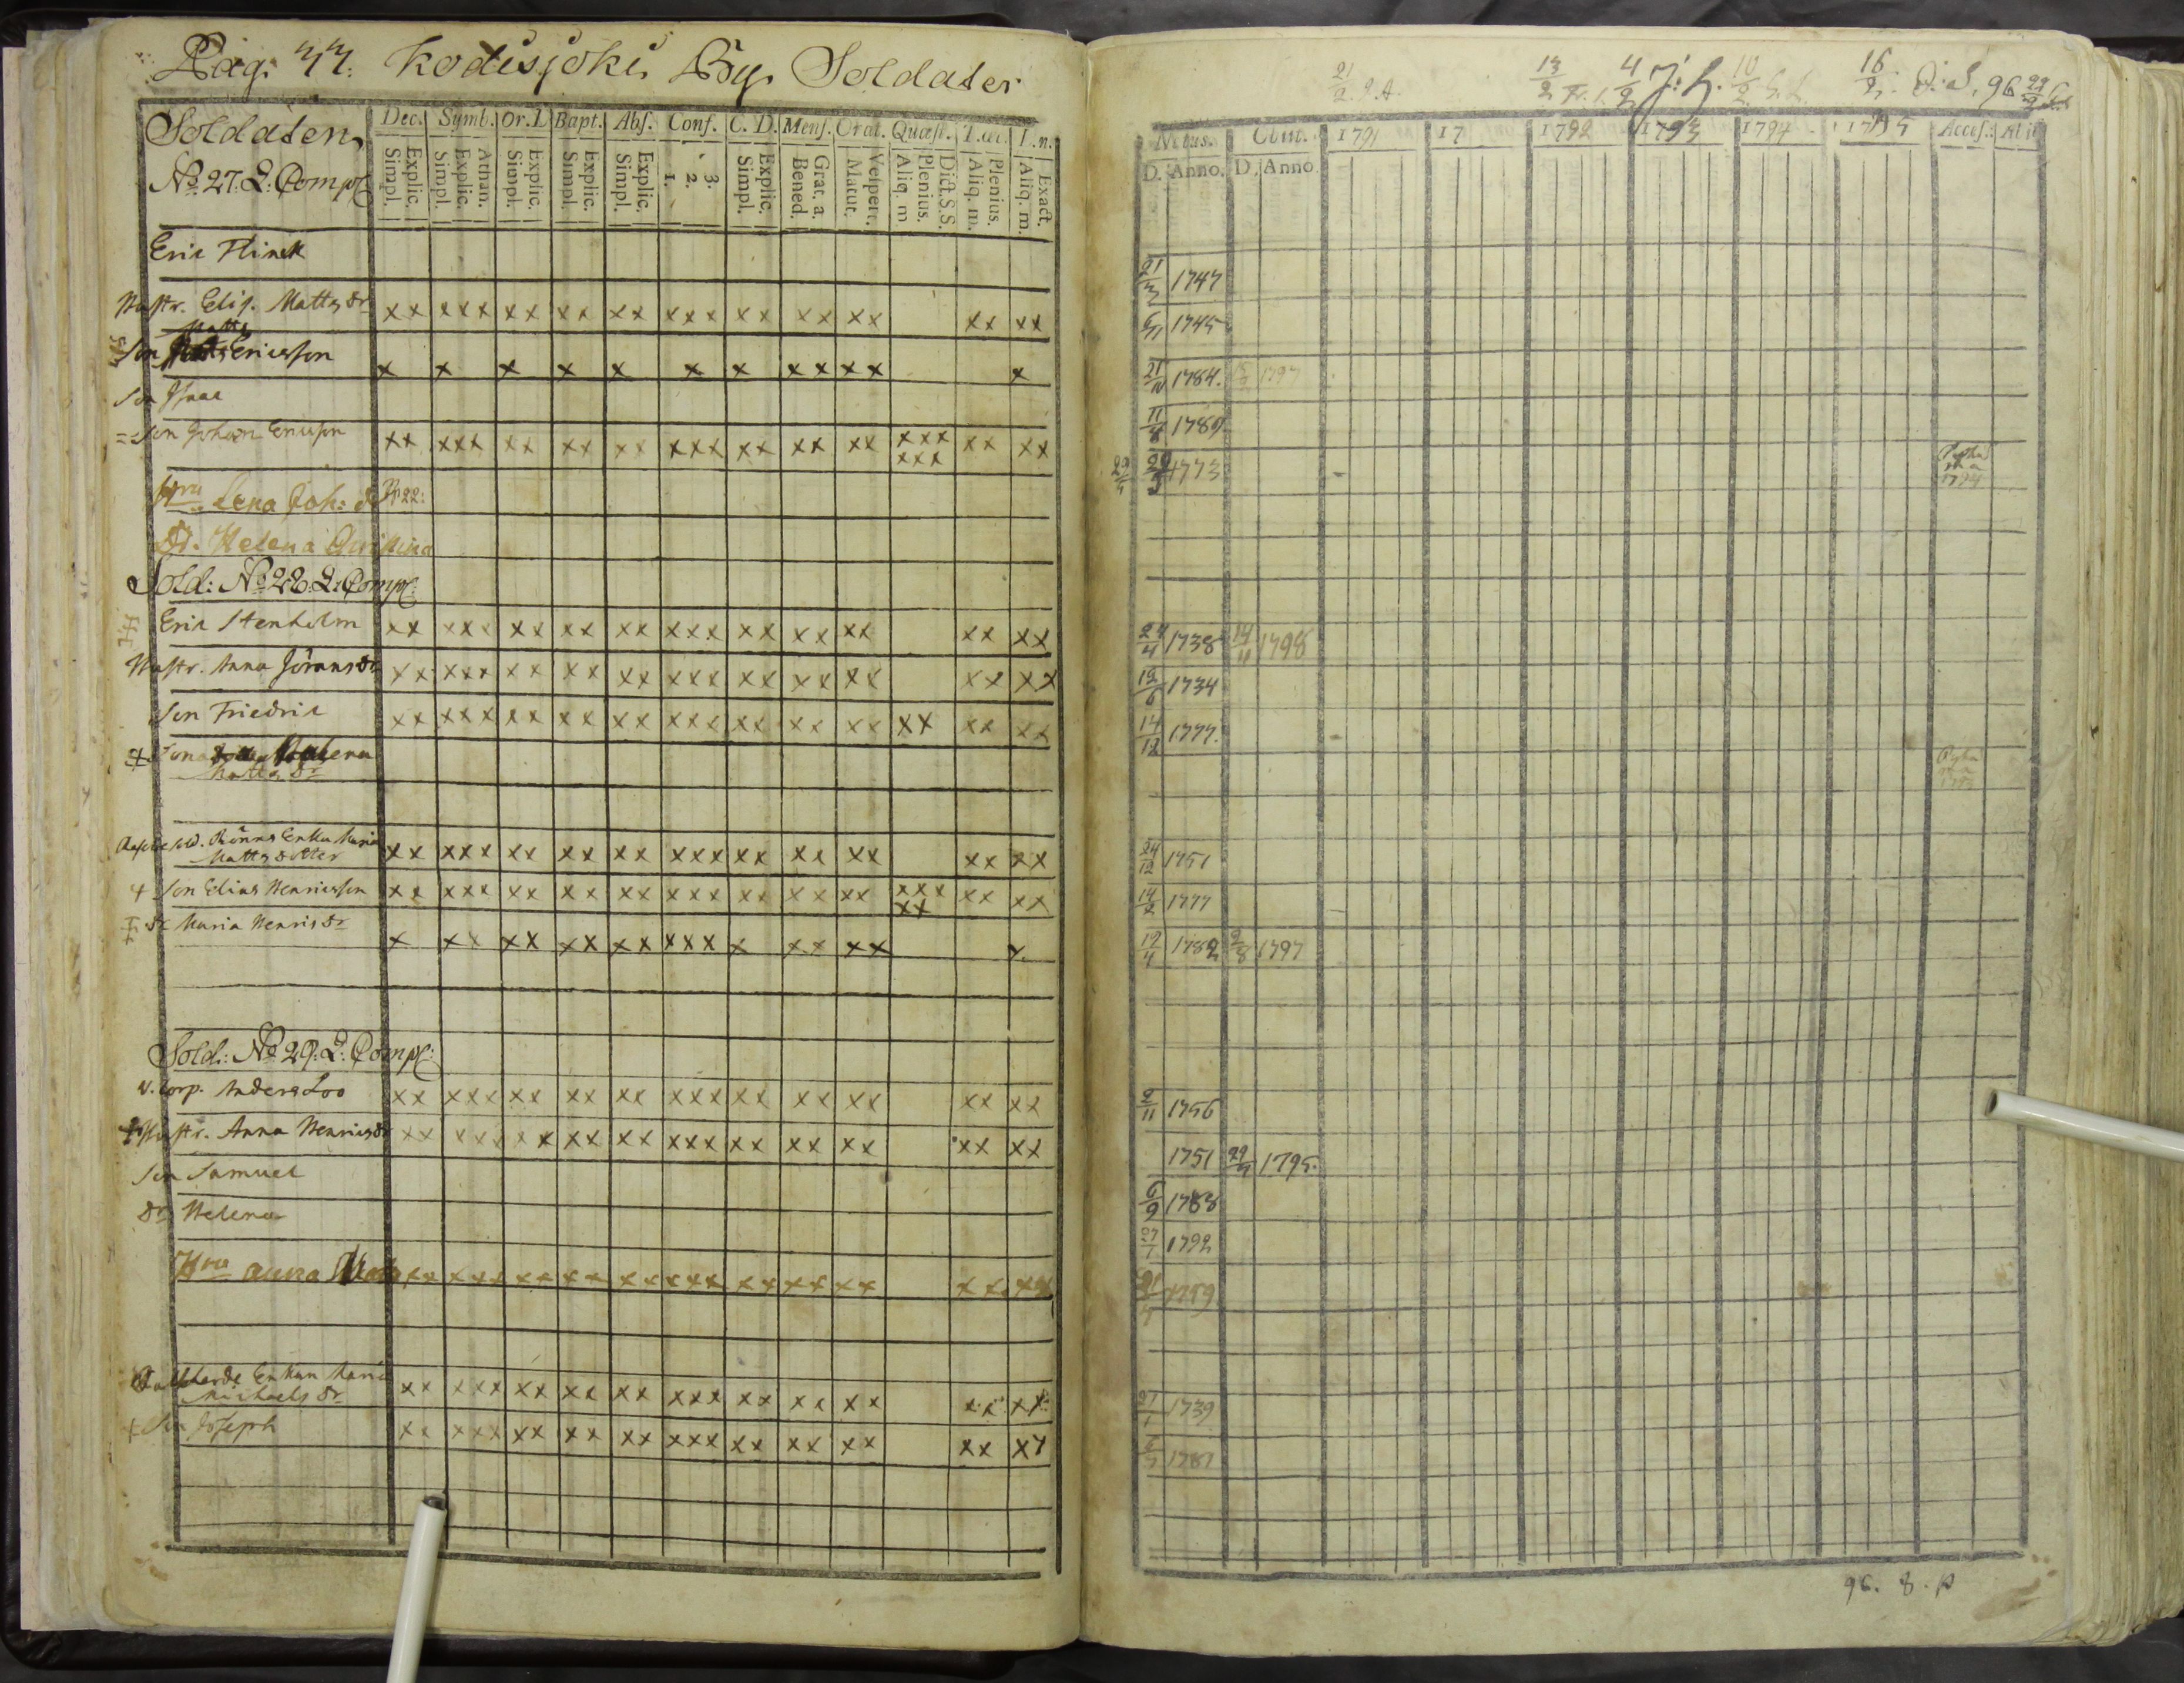 Pag. 44. Kodisjoki By. Soldater
Soldaten, Dec. Symb. Or. D. Bapt. Abs. Conf. C. D. Mens. Orat. Quæst. T. œc. L. n.
No 27. L: Comp:
Simpl. Explic. Simpl. Explic. Athan. Simpl. Explic. Simpl. Explic. Simpl. Explic. 1. 2. 3. Simpl. Explic. Bened. Grat. a. Matut. Vespert. Aliq. m. Plenius. Dict. S. S. Aliq. m. Plenius. Aliq. m. Exact.
Eric Flinck
Hustr. Elis. Matts dr xx xxx xx xx xx xxx xx xx xx xx xx
Matts
Son Ericsson x x x x x x x xx xx x
Son Isaac
Son Johan Ericsson xx xxx xx xx xx xxx xx xx xx xxx xx xx
xxx
Hru Lena Joh: d Pp 22:
Dr. Helena Christina
Sold: No 28. L: Comp:
Eric Stenholm xx xxx xx xx xx xxx xx xx xx xx xx
Hustr. Anna Jörans dr xx xxx xx xx xx xxx xx xx xx xx xx
Son Friedric xx xxx xx xx xx xxx xx xx xx xx xx xx
Matts dr
Enka Maria
Matts dotter xx xxx xx xx xx xxx xx xx xx xx xx
+ Son Elias Henricsson xx xxx xx xx xx xxx xx xx xx xxx xx xx
xx
dr Maria Henrics dr x xx xx xx xx xxx x xx xx x
Sold: No 29. L: Comp:
v. Corp. Anders Loo xx xxx xx xx xx xxx xx xx xx xx xx
Hustr. Anna Henrics dr xx xxx xx xx xx xxx xx xx xx xx xx
Son Samuel
dr Helena
Hru Anna xx xxx xx xx xx xxx xx xx xx xx xx
Enkan Maria
Michaels dr xx xxx xx xx xx xxx xx xx xx xx xx
+ Son Joseph xx xxx xx xx xx xxx xx xx xx xx xx
21/2 13/2 4/2 J: L. 10/2 16/2 96
Natus. Obiit. 1791 17 1792 1793 1794 1795 Access. Abiit
D. Anno. D. Anno.
21/3 1747
6/11 1745
21/10 1784. 1797
11/8 1789.
29/4 1773
24/4 1738 14/4 1798
12/6 1734
14/12 1777.
24/12 1751
14/2 1777
19/4 1782 2/8 1797
2/11 1756
1751 29/4 1795.
6/9 1788
27/1 1792
1759
27/1 1739
1781
96. 8. p